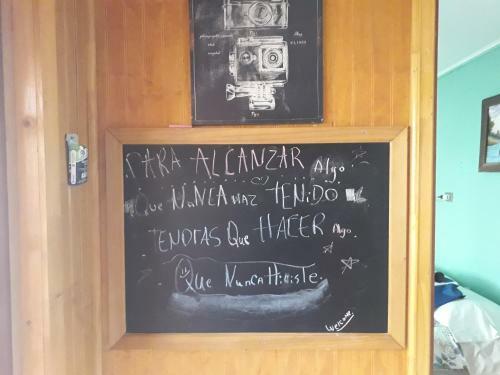 PARA ALCANZAR Algo
Que NUNCA HAZ TENIDO
TENDRAS Que HACER Algo.
Que Nunca Hiciste.
Welcome.